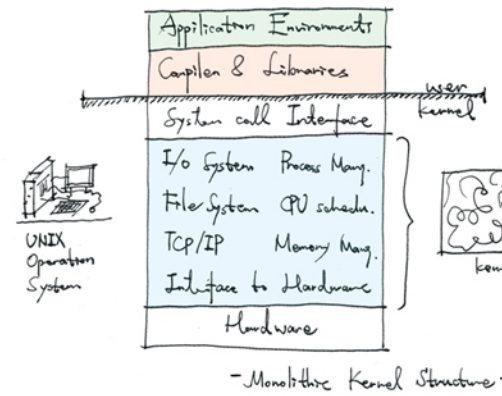 Application Environments
Compiler & Libraries
user
kernel
System call Interface
I/o System Process Mang.
File System CPU schedu.
TCP/IP Memory Mang.
Interface to Hardware
Hardware
UNIX
Operation
System
- Monolithic Kernel Structure -